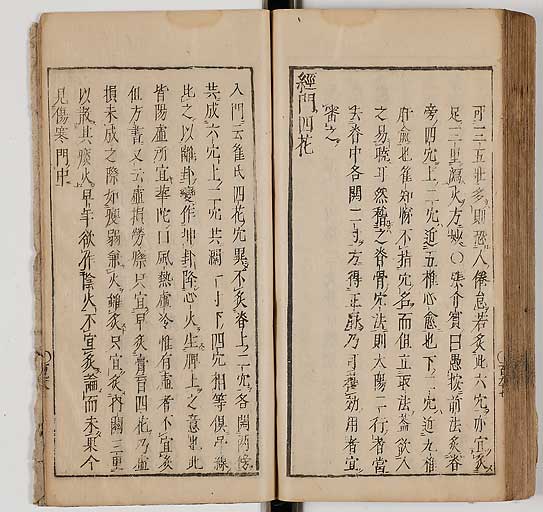 可三五壯多則恐人倦怠若灸此六穴亦宜灸
足三里瀉火方妙○張介賓曰愚按前法灸脊
旁四穴上二穴近五椎心俞也下二穴近九椎
肝俞也崔知悌不指穴名而但立取法蓋欲人
之易曉耳然稽之脊骨穴法則太陽二行者當
去脊中各開二寸方得正脈乃可獲効用者宜
審之
經門四花
入門云崔氏四花穴異不灸脊上二穴各開兩傍
共成六穴上二穴共闊一寸下四穴相等俱吊線
比之以離卦變作坤卦降心火生脾上之意也此
皆陽虛所宜華陀曰風熱虛冷惟有虛者不宜灸
但方書又云虛損勞瘵只宜早灸膏肓四花乃虛
損未成之際如瘦弱兼火雖灸只宜灸內關三里
以散其痰火早年欲作陰火不宜灸論而未果今
見傷寒門中